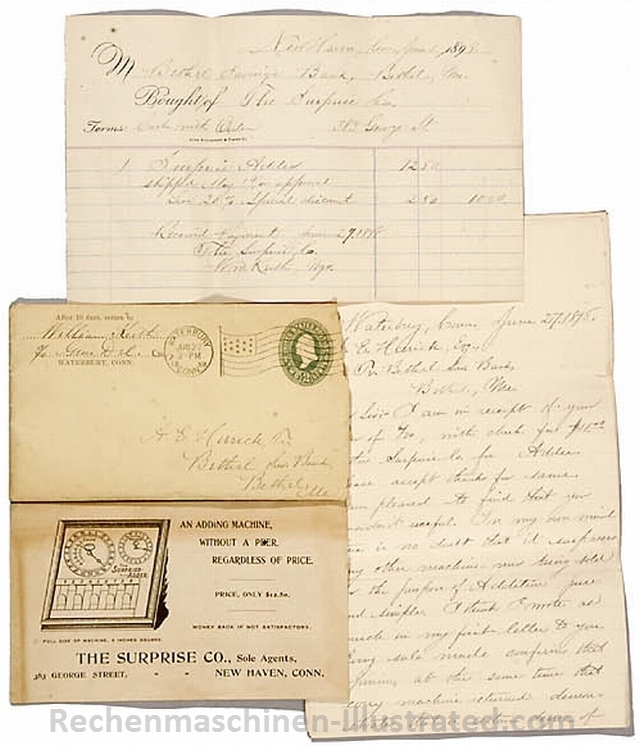 New Haven, Conn June 1898.
M Bethel Savings Bank, Bethel, Me.
Bought of The Surprise Co.
Terms: Cash with Order 383 George St
1 Surprise Adder 12 50
shipped May on approval
Less 20% Special discount 2 50 10.00
Received Payment, June 27, 1898
The Surprise Co.
Wm Keith, Mgr.
After 10 days, return to
William Keith
c/o Gen Del.
WATERBURY, CONN.
WATERBURY
JUN 27
2-PM
CONN.
A. E. Herick Tr
Bethel Sav Bank
Bethel,
Me
SURPRISE
ADDER
FULL SIZE OF MACHINE, 8 INCHES SQUARE.
AN ADDING MACHINE,
WITHOUT A PEER,
REGARDLESS OF PRICE.
PRICE, ONLY $12.50.
MONEY BACK IF NOT SATISFACTORY.
THE SURPRISE CO., Sole Agents,
383 GEORGE STREET, - - NEW HAVEN, CONN.
Waterbury, Conn June 27, 1898.
E Herick, Esq.
Tr. Bethel Sav Bank,
Bethel, Me
Sir: I am in receipt of your
of with check for $10.00
Surprise Co for Adder.
accept thanks for same.
pleased to find that you
useful. In my own mind
is no doubt that it surpasses
other machine now being sold
the purpose of Addition pure
and simple. I think I wrote as
much in my first letter to you
sale made confirms that
at the same time that
every machine returned
of
Rechenmaschinen-Illustrated.com